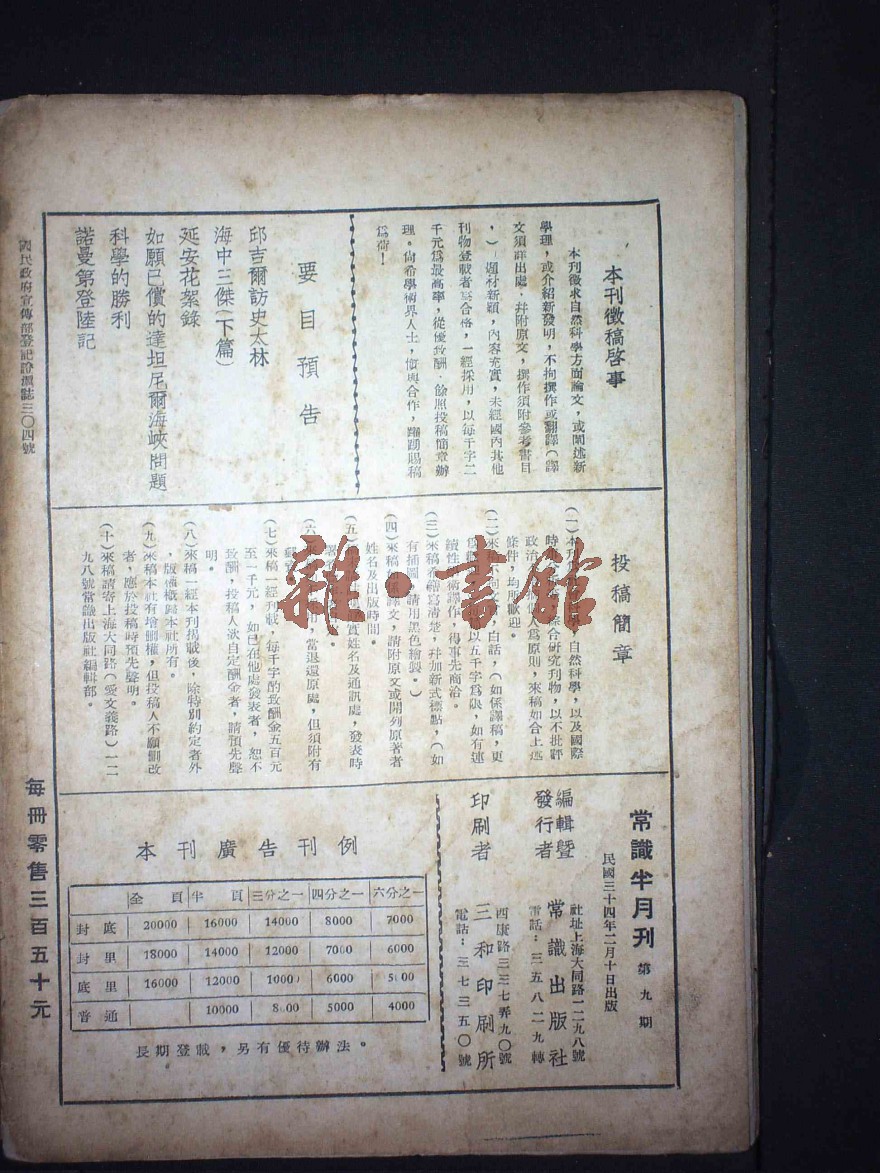 本刊徵稿啓事
本刊徵求自然科學方面論文，或闡述新
學理，或介紹新發明，不拘撰作或翻譯（譯
文須詳出處，幷附原文，撰作須附參考書目
，）題材新穎，內容充實，未經國內其他
刊物登載者爲合格，一經採用，以每千字二
千元爲最高率，從優致酬，餘照投稿簡章辦
理。尙希學術界人士，惠與合作，踴躍賜稿
爲荷！
要目預告
邱吉爾訪史太林
海中三傑（下篇）
延安花絮錄
如願已償的達坦尼爾海峽問題
科學的勝利
諾曼第登陸記
國民政府宣傳部登記證滬誌三〇四號
投稿簡章
（一）本刊 自然科學，以及國際
時 綜合硏究刊物，以不批評
政治 個人爲原則，來稿如合上述
條件，均所歡迎。
（二）來 白話，（如係譯稿，更
以五千字爲限，如有連
續性 譯作，得事先商洽。
（三）來稿 繕寫清楚，幷加新式標點，（如
有插圖，請用黑色繪製。）
（四）來稿如係譯文，請附原文或開列原著者
姓名及出版時間。
（五） 眞實姓名及通訊處，發表時
（六） 用，當退還原處，但須附有
（七）來稿一經刊載，每千字酌致酬金五百元
至一千元，如已在他處發表者，恕不
致酬，投稿人欲自定酬金者，請預先聲
明。
（八）來稿一經本刊揭載後，除特別約定者外
，版權槪歸本社所有。
（九）來稿本社有增刪權，但投稿人不願刪改
者，應於投稿時預先聲明。
（十）來稿請寄上海大同路（愛文義路）一二
九八號常識出版社編輯部。
雜·書館
常識半月刊 第九期
民國三十四年二月十日出版
編輯曁
發行者
社址上海大同路一二九八號
常識出版社
電話：三五八二九轉
印刷者
西康路三三七弄九〇號
三和印刷所
電話：三七三五〇號
本刊廣告刊例
全頁 半頁 三分之一 四分之一 六分之一
封底 20000 16000 14000 8000 7000
封里 18000 14000 12000 7000 6000
底里 16000 12000 10000 6000 5000
普通 10000 8000 5000 4000
長期登載，另有優待辦法。
每冊零售三百五十元